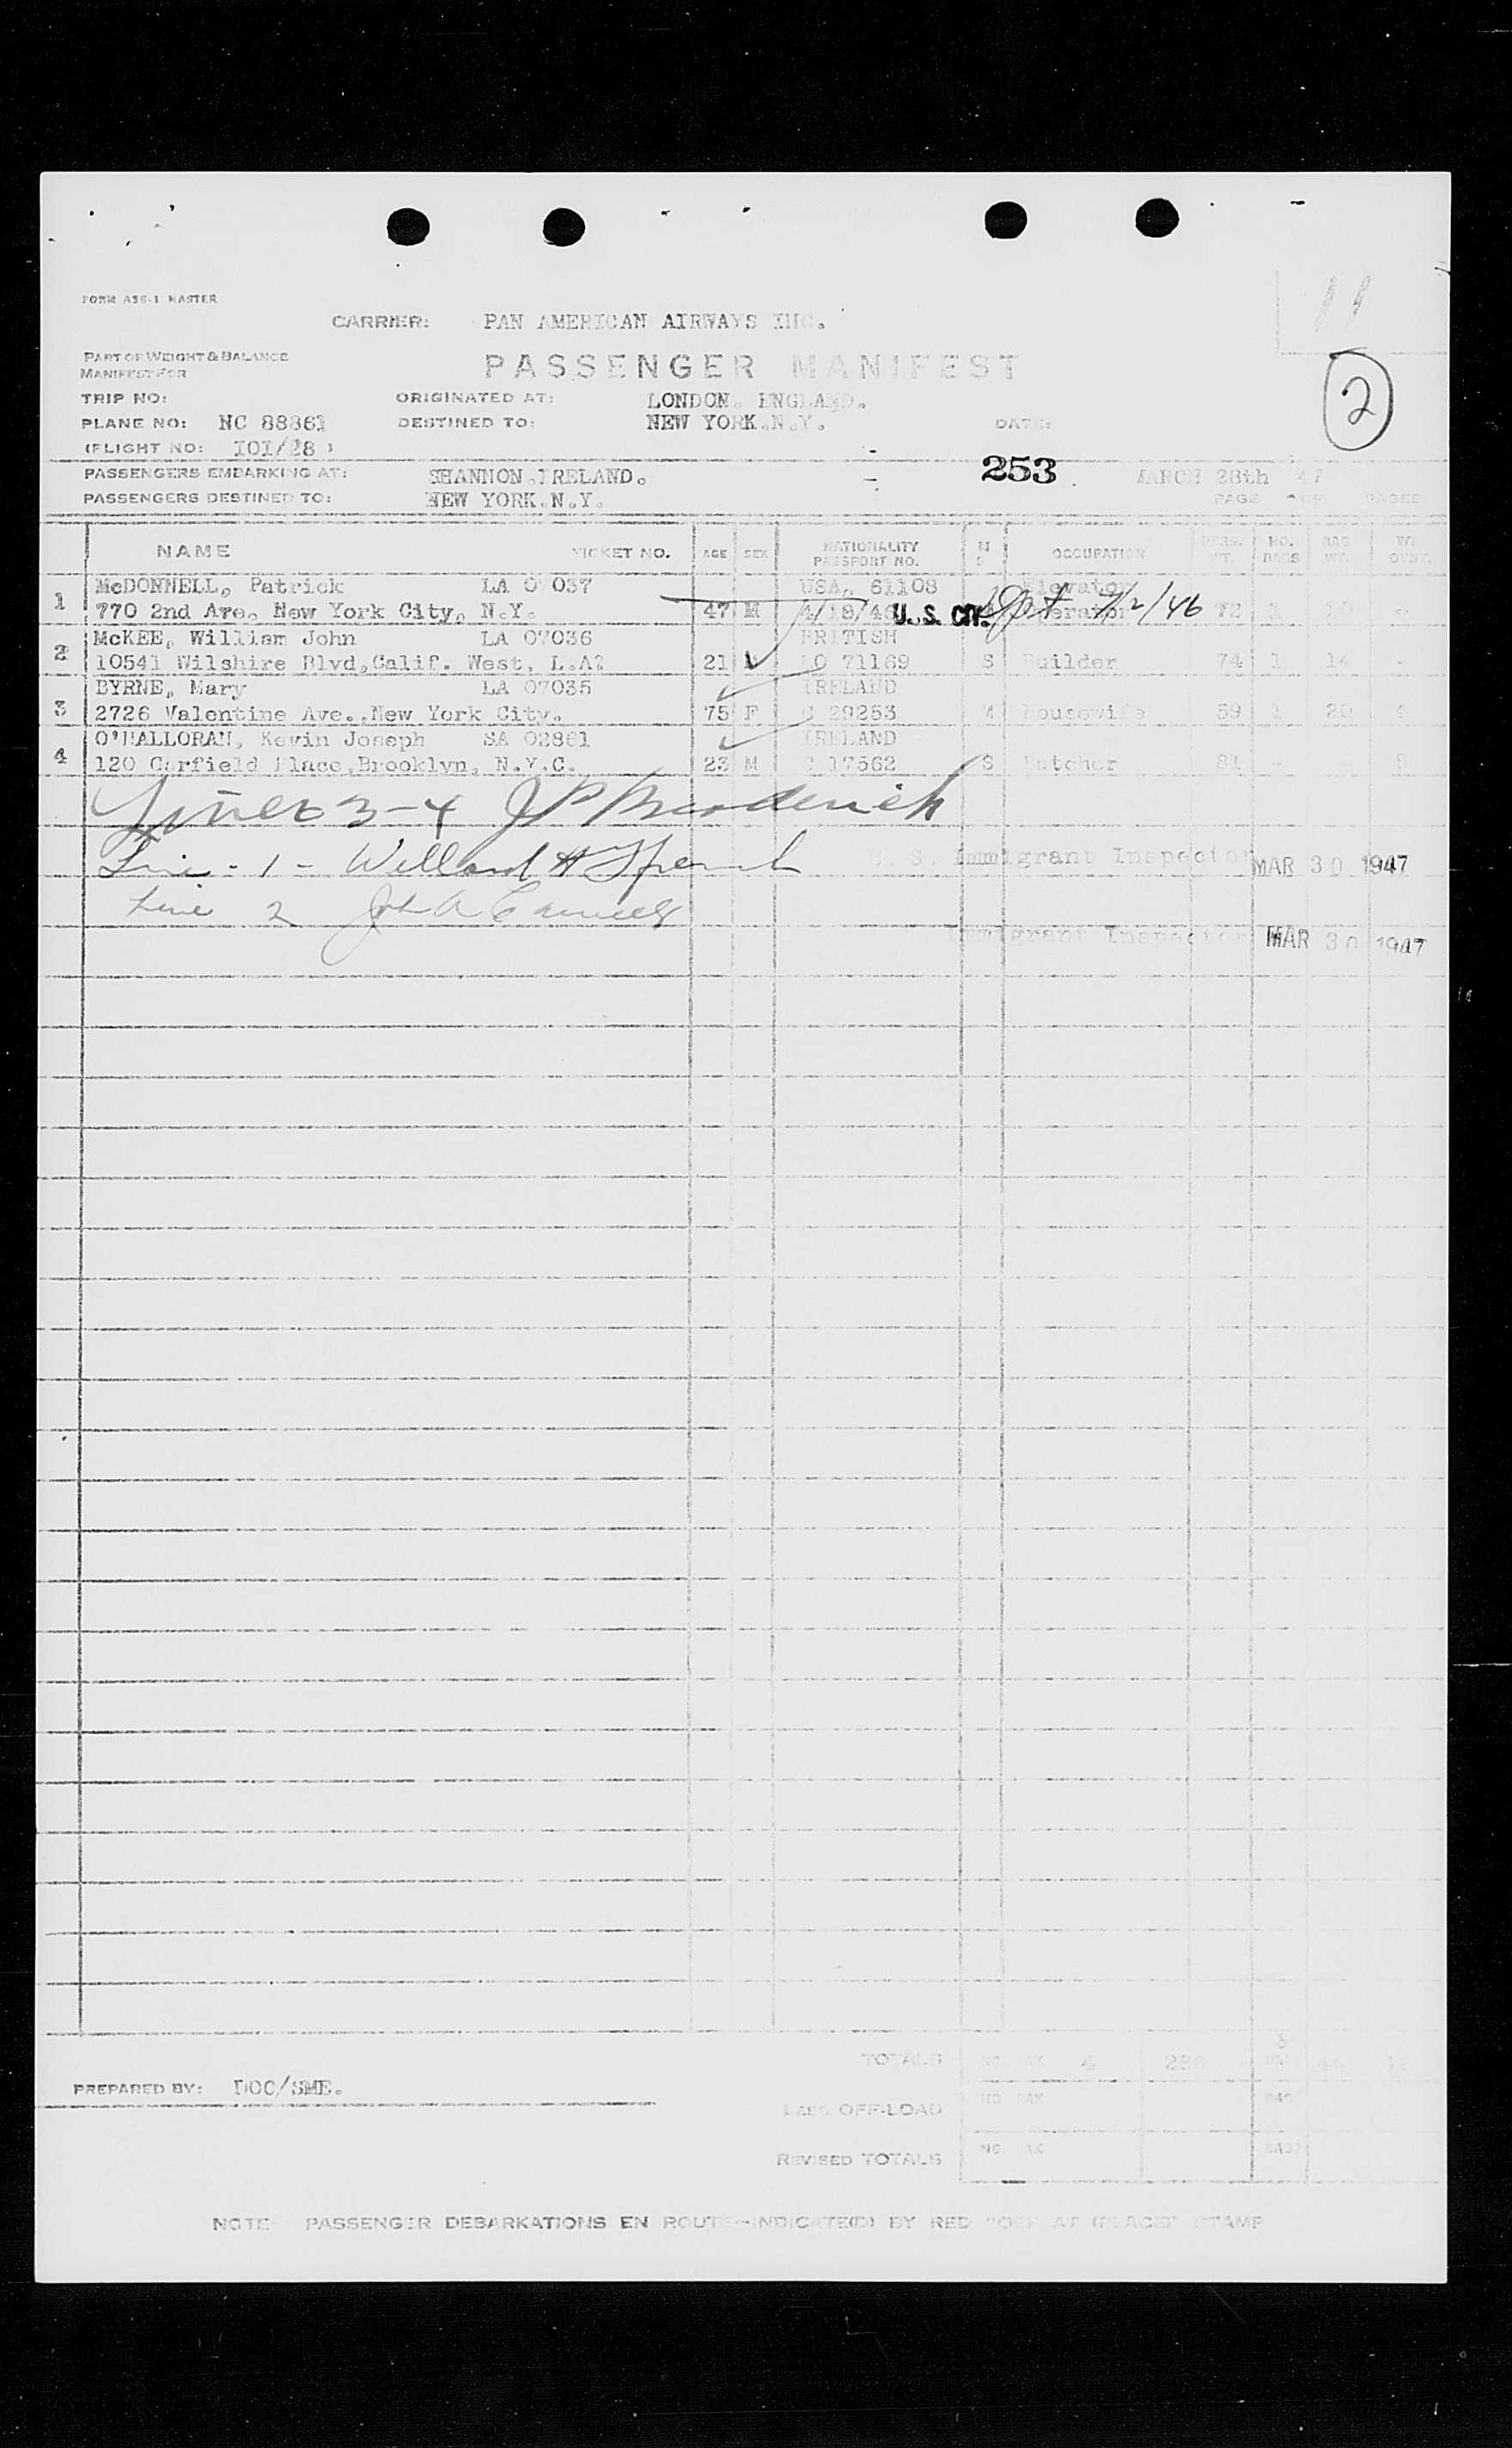 FORM ASS-1 MASTER
11
CARRIER: PAN AMERICAN AIRWAYS INC.
PART OF WEIGHT & BALANCE
MANIFEST FOR
PASSENGER MANIFEST
2
TRIP NO: ORIGINATED AT: LONDON. ENGLAND.
PLANE NO: NC 88861 DESTINED TO: NEW YORK.N.Y. DATE:
(FLIGHT NO: IOI/28 )
PASSENGERS EMBARKING AT: SHANNON.IRELAND. 253 MARCH 28th 47
PASSENGERS DESTINED TO: NEW YORK.N.Y. PAGE OF PAGES
NAME TICKET NO. AGE SEX NATIONALITY PASSPORT NO. M S OCCUPATION PERS. WT. NO. BAGS BAG WT. WT OVER
McDONNELL, Patrick LA 0 037 USA, 61108 Elevator
1 770 2nd Are, New York City, N.Y. 47 M 4/18/46 U.S. CIT. Operator 7/2/46 72 1
McKEE, William John LA 07036 BRITISH
2 10541 Wilshire Blvd,Calif. West, L.A? 21 LO 71169 S Builder 74 1 14 -
BYRNE, Mary LA 07035 IRELAND
3 2726 Valentine Ave.,New York City. 75 F C 29253 M Housewife 59 1 20 4
O'HALLORAN, Kevin Joseph SA 02861 IRELAND
4 120 Garfield Place,Brooklyn, N.Y.C. 23 M C 17562 S Butcher 81 - - 9
Lines 3-4 J P Broderick
Line - 1 - Willard H U.S. Immigrant Inspector MAR 30 1947
Line 2 John A
Immigrant Inspector MAR 30 1947
TOTALS NO. PAX 4 286 3 BAGS 44
PREPARED BY: DOC/SME.
LESS OFF-LOAD NO. PAX BAG
REVISED TOTALS NO. PAX BAGS
NOTE PASSENGER DEBARKATIONS EN ROUTE-INDICATE(D) BY RED "OFF AT (PLACE)" STAMP